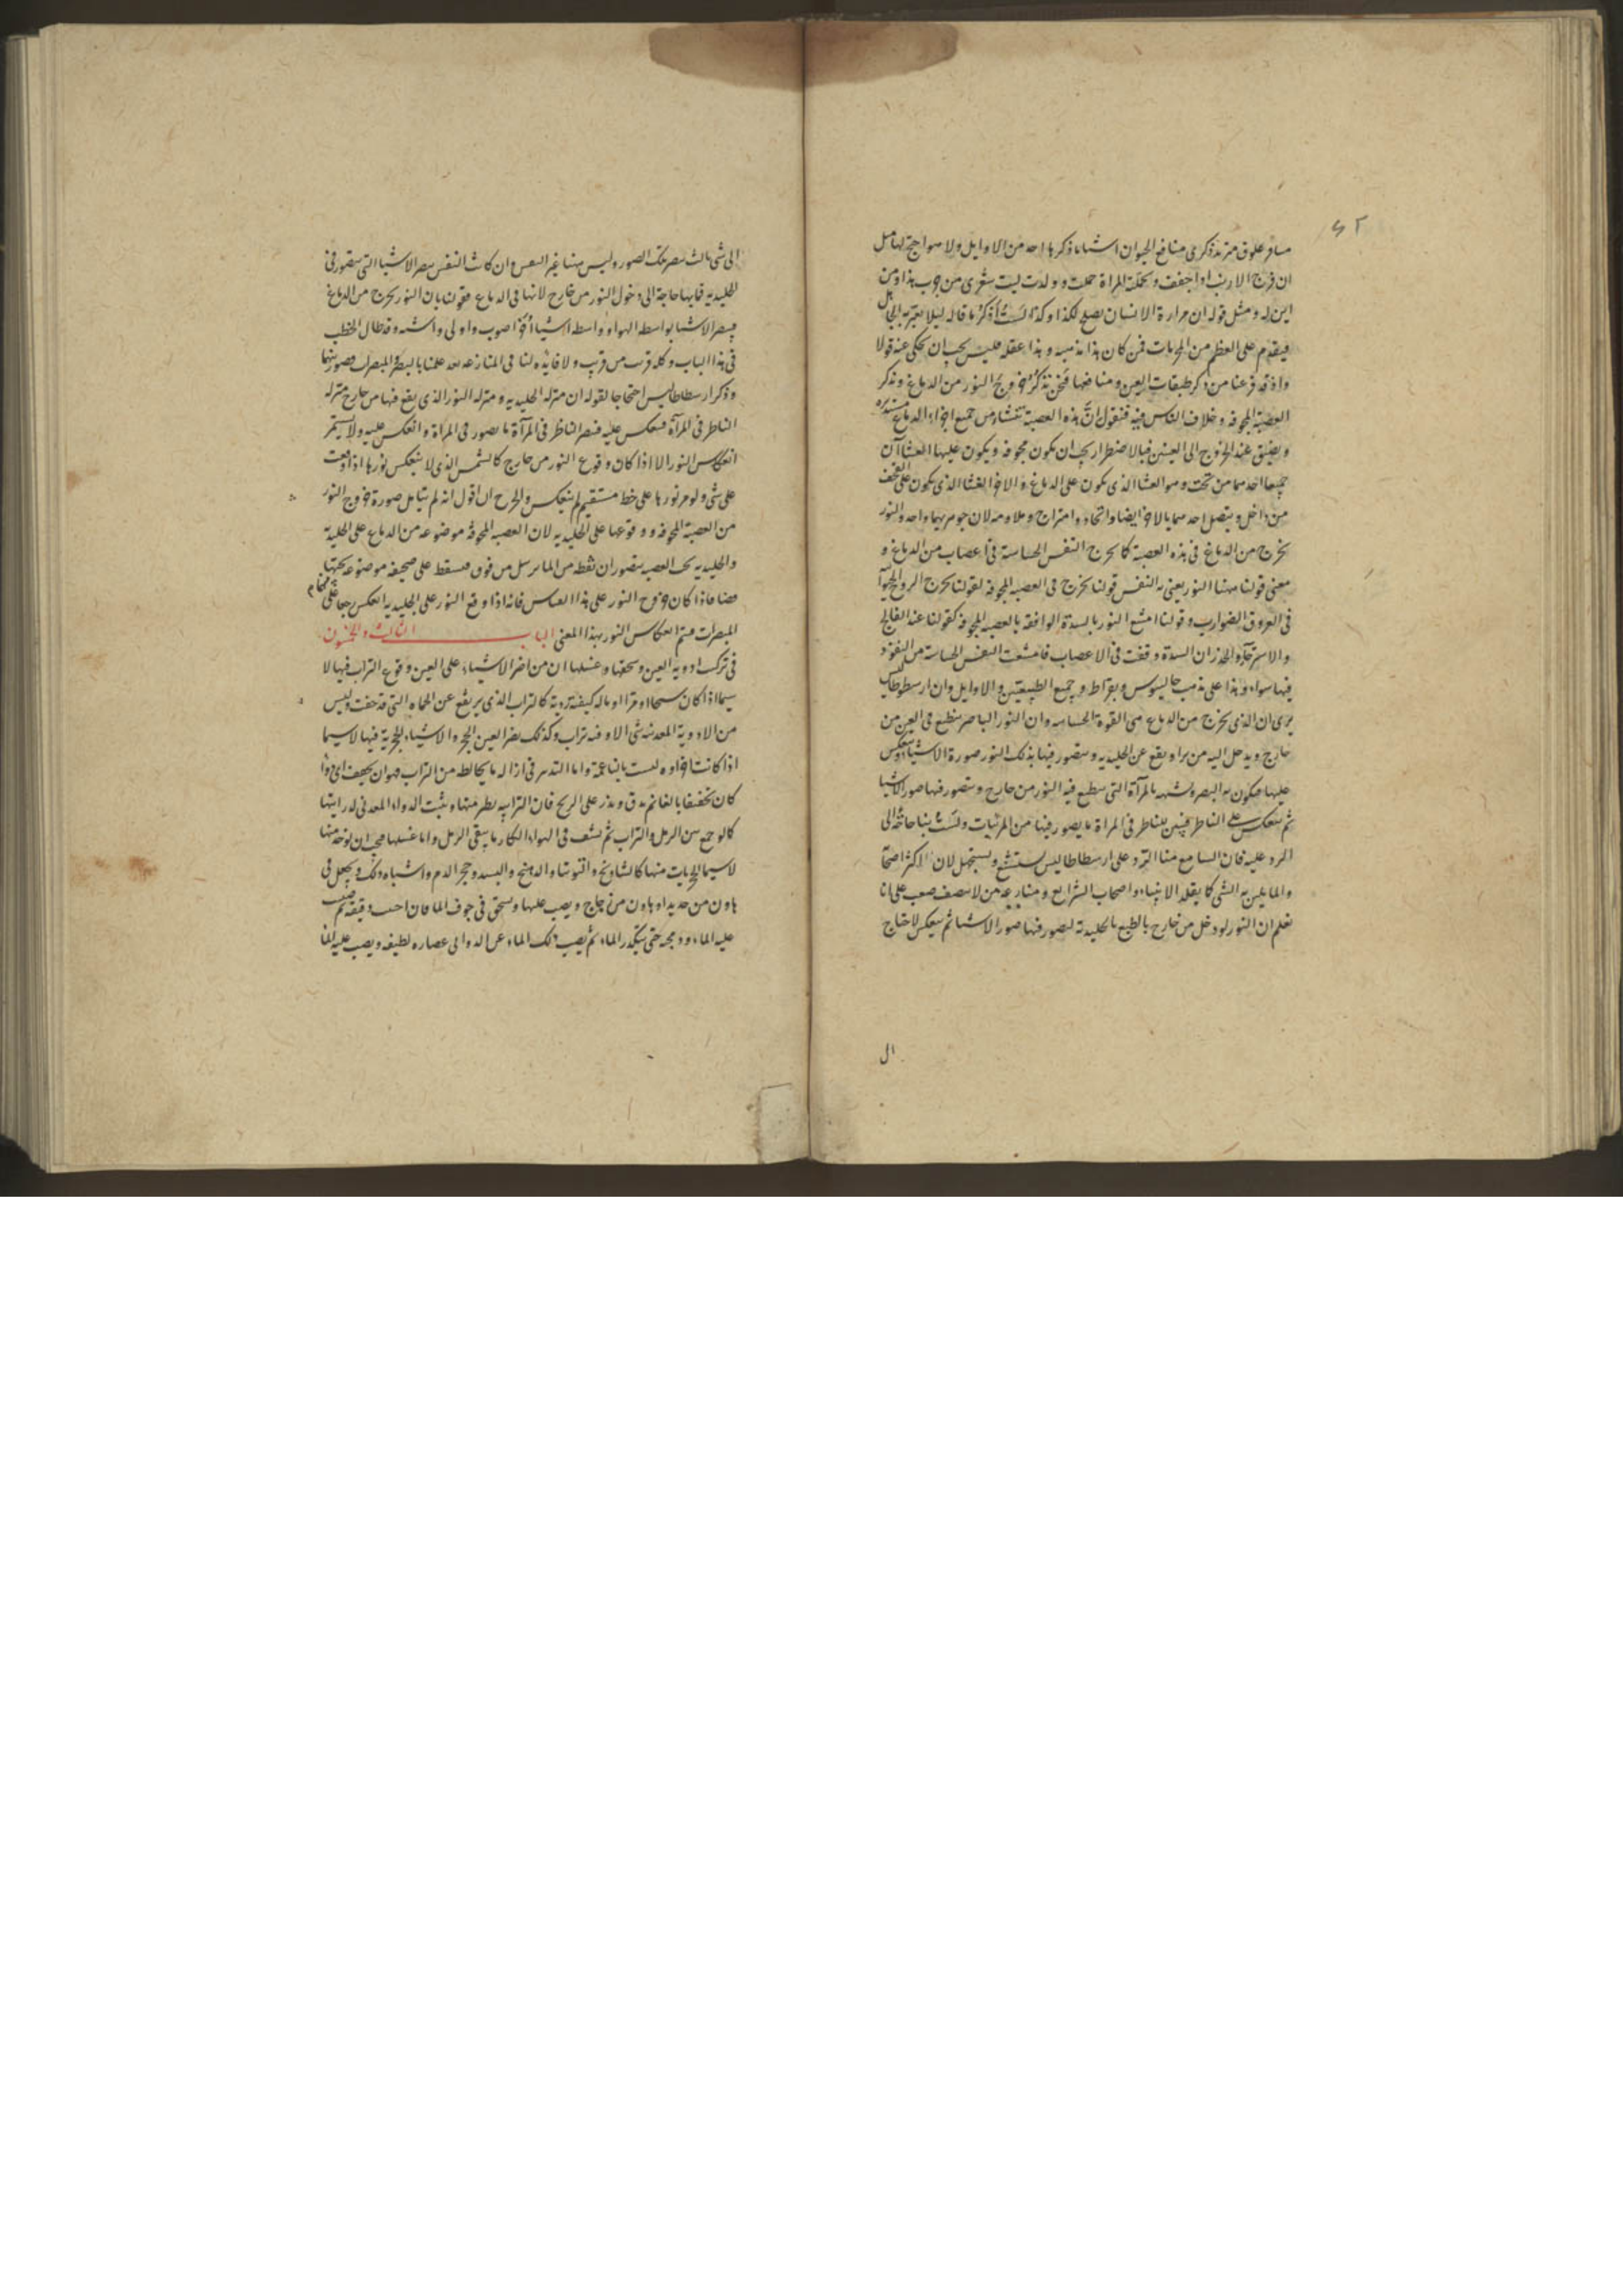 ٤٢
في منافع الحيوان اشياء ما ذكرها احد من الاوايل ولا هو احتج لها مثل
ان فرج الارنب اذا جفف وتحملته المراة حملت وولدت ليت شعري من جرب هذا ومن
اين له ومثل قوله ان مرارة الانسان تصلح لكذا وكذا لست أذكر ما قاله ليلا يغتر به الجاهل
فيقدم على العظيم من المحرمات فمن كان هذا مذهبه وهذا عقله فليس يجب ان يحكى عنه قولا
واذ قد فرغنا من ذكر طبقات العين ومنافعها فنحن نذكر خروج النور من الدماغ ونذكر
العصبة المجوفة وخلاف الناس فيه فنقول ان هذه العصبة تنشاء من جميع اجزاء الدماغ مستديره
ويضيق عند الخروج الى العينين فبالاضطرار يجب ان يكون مجوفة ويكون عليها الغشاآن
جميعا احدهما من تحت وهو الغشا الذي يكون على الدماغ والاخر الغشا الذي يكون على القحف
من داخل ويتصل احدهما بالاخر ايضا واتحاد وامتزاج وملاومه لان جوهريهما واحد والنور
يخرج من الدماغ في هذه العصبة كما يخرج النفس الحساسة في اعصاب من الدماغ و
معنى قولنا ههنا النور يعني به النفس قولنا يخرج في العصبه المجوفه لقولنا يخرج الروح الحيواني
في العروق الضوارب وقولنا امتنع النور بالسدة الواقفه بالعصبه المجوفه كقولنا عند الفالج
والاسترخاء والخدر ان السدة وقفت في الاعصاب فامتنعت النفس الحساسة من النفوذ
فيها سواء وهذا على مذهب جالينوس وبقراط وجميع الطبيعيين والاوايل وان ارسطوطاليس
يرى ان الذي يخرج من الدماغ هي القوة الحساسه وان النور الباصر ينطبع في العين من
خارج ويدخل اليه من برا ويقع عن الجليديه ويتصور فيها بذلك النور صورة الاشيا وينعكس
عليها فيكون به البصر وشبهه بالمرآة التي ينطبع فيه النور من خارج ويتصور فيها صور الاشيا
ثم ينعكس على الناظر فيتبين للناظر في المراة ما يصور فيها من المرئيات ولست بنا حاجة الى
الرد عليه فان السامع منا الرد على ارسطاطاليس يستشنع ويستجهل لان اكثر اصحا
والمايلين به الشي كما يقلد الانبياء واصحاب الشرايع ومنازعه من لا ينصف صعب على انا
نعلم ان النور لو دخل من خارج بالطبع بالجليدية لتصور فيها صور الاشيا ثم ينعكس لاحتاج
ال
الى شي ثالث يبصر تلك الصور وليس هنا غير النفس وان كانت النفس يبصر الاشيا التي يتصور في
الجليديه فايما حاجة الى دخول النور من خارج لانها في الدماغ فقولنا بان النور يخرج من الدماغ
فيبصر الاشيا بواسطه الهواء وواسطه اشيا أخر اصوب واولى واشبه وقد طال الخطب
في هذا الباب وكله قريب من قريب ولا فايده لنا في المنازعه بعد علمنا بالبصر والمبصرات وصورتهما
وذكر ارسطاطاليس احتجاجا لقوله ان منزله الجليديه ومنزله النور الذي يقع فيها من خارج منزله
الناظر في المرآة فينعكس عليه فيبصر الناظر في المرآة ما يصور في المراة وانعكس عليه ولا يستمر
انعكاس النور الا اذا كان وقوع النور من خارج كالشمس الذي لا ينعكس نورها اذا وقعت
على شي ولو مر نورها على خط مستقيم لم ينعكس والجرح ان اقول انه لم يتامل صورة خروج النور
من العصبة المجوفه ووقوعها على الجليديه لان العصبه المجوفه موضوعه من الدماغ على الجليديه
والجليديه تحت العصبه يتصور ان نقطه من الما يرسل من فوق فيسقط على صحيفه موضوعه تحتها
فضا فاذا كان خروج النور على هذا القياس فانه اذا وقع النور على الجليديه انعكس جميعا على
المبصرات فيتم انعكاس النور بهذا المعنى الباب الثالث والخمسون
في تركيب ادوية العين وسحقها وغسلها ان من اضر الاشياء على العين وقوع التراب فيها لا
سيما اذا كان سبخا او مرا او ماله كيفية ردية كالتراب الذي يرتفع عن الحماه التي قد جفت وليس
من الادوية المعدنيه شي الا وفيه تراب وكذلك يضر العين الحجر والاشياء الحجرية فيها لا سيما
اذا كانت اجزاوه ليست بالناعمة واما التدبير في ازاله ما يخالطه من التراب فهو ان يجفف اي دوا
كان تجفيفا بالغا ثم يدق ويذر على الريح فان الترابيه يطير منها ويثبت الدواء المعدني لرزانتها
كما لو جمع بين الرمل والتراب ثم نسف في الهواء الكاره ما يبقى الرمل واما غسلها فيجب ان يوخذ منها
لا سيما الحجريات منها كالشادنج والتوتيا والدهنج والبسد وحجر الدم واشباه ذلك ويجعل في
هاون من حديد او هاون من زجاج ويصب عليها ويسحق في جوف الما فان احسست دقيقه ثم صب
عليه الماء ودمجه حتى يتكدر الماء ثم يصب ذلك الماء عن الدوا الى غضاره نظيفه ويصب عليه الما